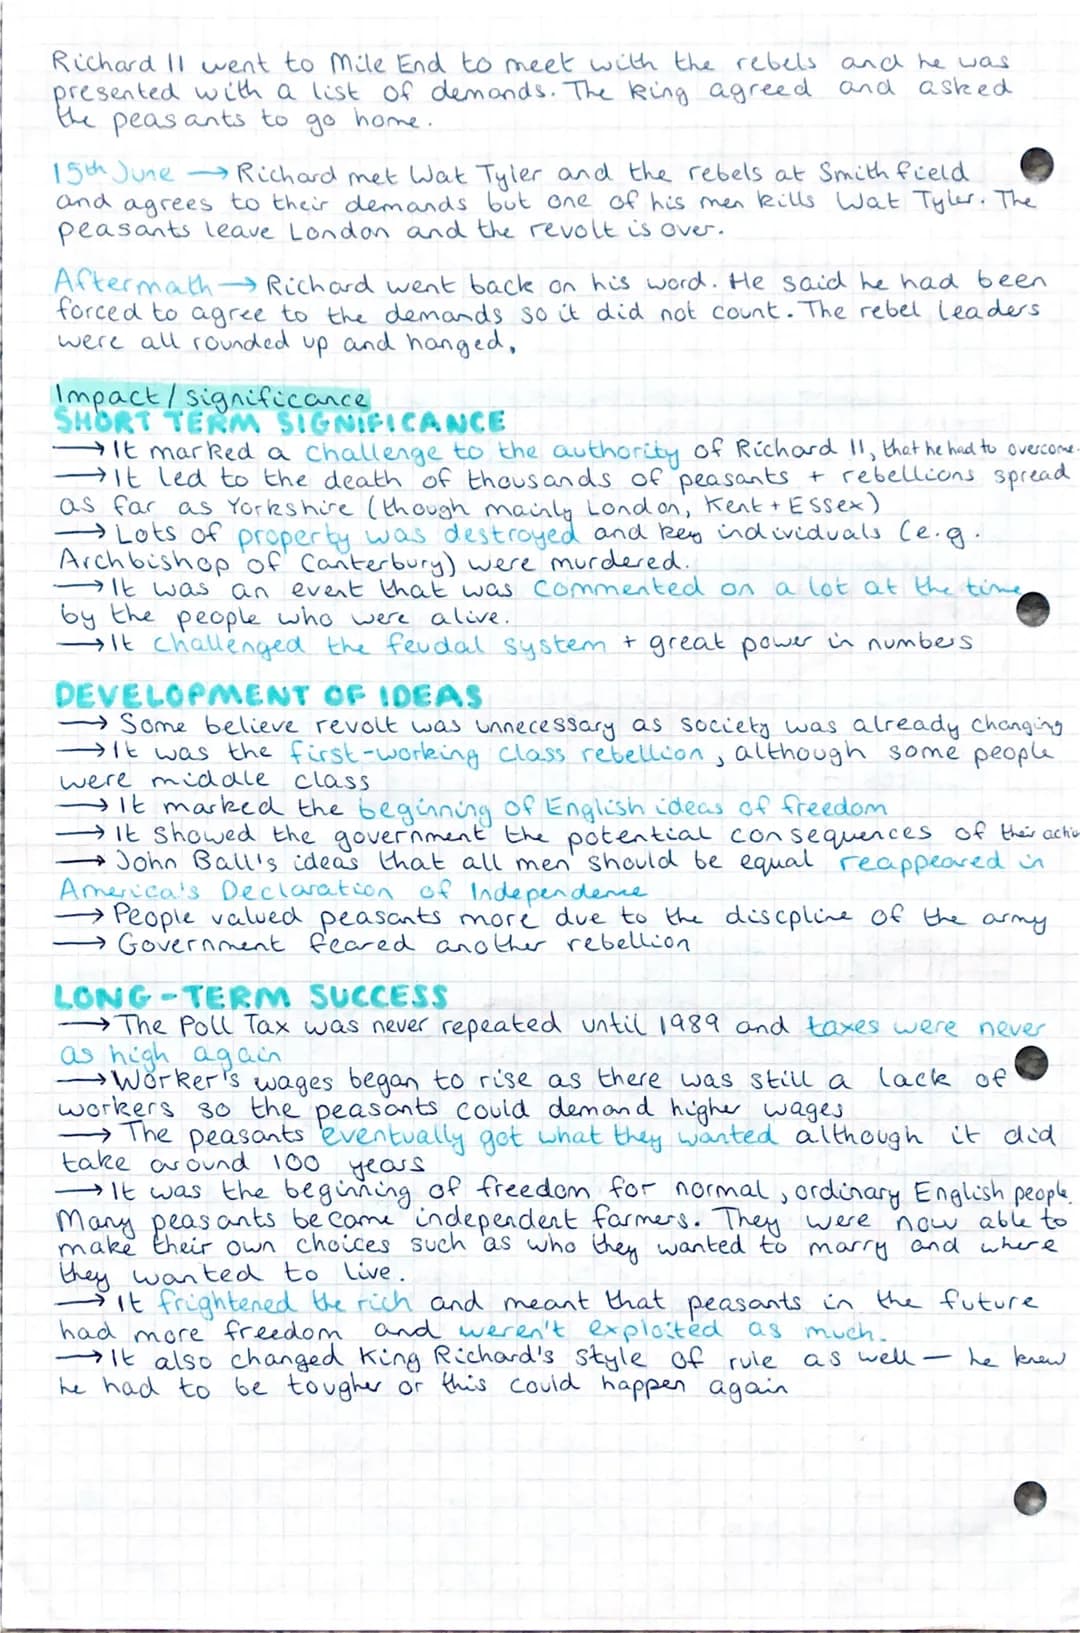 Richard II went to Mile End to meet with the rebels and he was
presented with a list of demands. The king agreed and asked
the peasants to go home.
15th June → Richard met Wat Tyler and the rebels at Smithfield
and agrees to their demands but one of his men kills Wat Tyler. The
peasants leave London and the revolt is over.
Aftermath → Richard went back on his word. He said he had been
forced to agree to the demands so it did not count. The rebel leaders
were all rounded up and hanged,
Impact/significance
SHORT TERM SIGNIFICANCE
→ It marked a challenge to the authority of Richard II, that he had to overcome.
→ It led to the death of thousands of peasants + rebellions spread
as far as Yorkshire (though mainly London, Kent + Essex)
→ Lots of property was destroyed and key individuals (e.g.
Archbishop of Canterbury) were murdered.
→ It was an event that was commented on a lot at the time
by the people who were alive.
→ It challenged the feudal system + great power in numbers
DEVELOPMENT OF IDEAS
→ Some believe revolt was unnecessary as society was already changing
→ It was the first-working class rebellion, although some people
were middle class
→ It marked the beginning of English ideas of freedom
→ It showed the government the potential consequences of their
→ John Ball's ideas that all men should be equal reappeared in
America's Declaration of Independence
→ People valued peasants more due to the discpline of the army
→ Government feared another rebellion
LONG-TERM SUCCESS
→ The Poll Tax was never repeated until 1989 and taxes were never
as high again
→ Worker's wages began to rise as there was still a lack of
workers so the peasants could demand higher wages
→ The peasants eventually got what they wanted although it did
take around 100 years
→ It was the beginning of freedom for normal, ordinary English people.
Many peasants become independent farmers. They were now able to
make their own choices such as who they wanted to marry and where
they wanted to live.
→ It frightened the rich and meant that peasants in the future
had more freedom and weren't exploited as much.
→ It also changed King Richard's style of rule as well — he knew
he had to be tougher or this could happen again